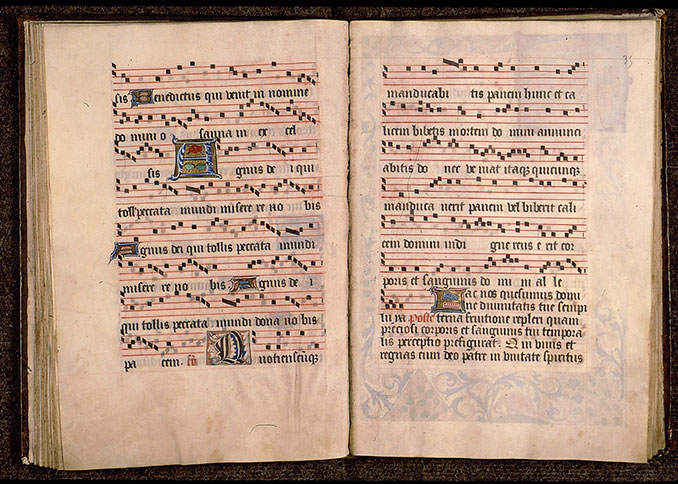 sis Benedictus qui venit in nomine
do mini o sanna in ex cel
sis Agnus de i qui
tollis peccata mundi misere re no bis
Agnus dei qui tollis peccata mundi
misere re no bis Agnus de i
qui tollis peccata mundi dona no bis
pa cem. co Quotienscunque
35
manducabi tis panem hunc et ca
licem bibetis mortem do mini annunci
abitis do nec ve niat itaque quicunque
manduca verit panem vel biberit cali
cem domini indi gne reus e rit cor
poris et sanguinis do mi ni al le
lu ya Postco Fac nos quesumus domi
ne divinitatis tue sempi
terna fruitione repleri quam
preciosi corporis et sanguinis tui tempora
lis perceptio prefigurat. Qui vivis et
regnas cum deo patre in unitate spiritus